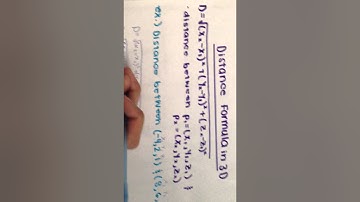 Distance Formula in 3D
D = √(x₂-x₁)²+(y₂-y₁)²+(z₂-z₁)²
• distance between P₁=(x₁,y₁,z₁) &
P₂=(x₂,y₂,z₂)
ex.) Distance between (-4,2,1) & (8,